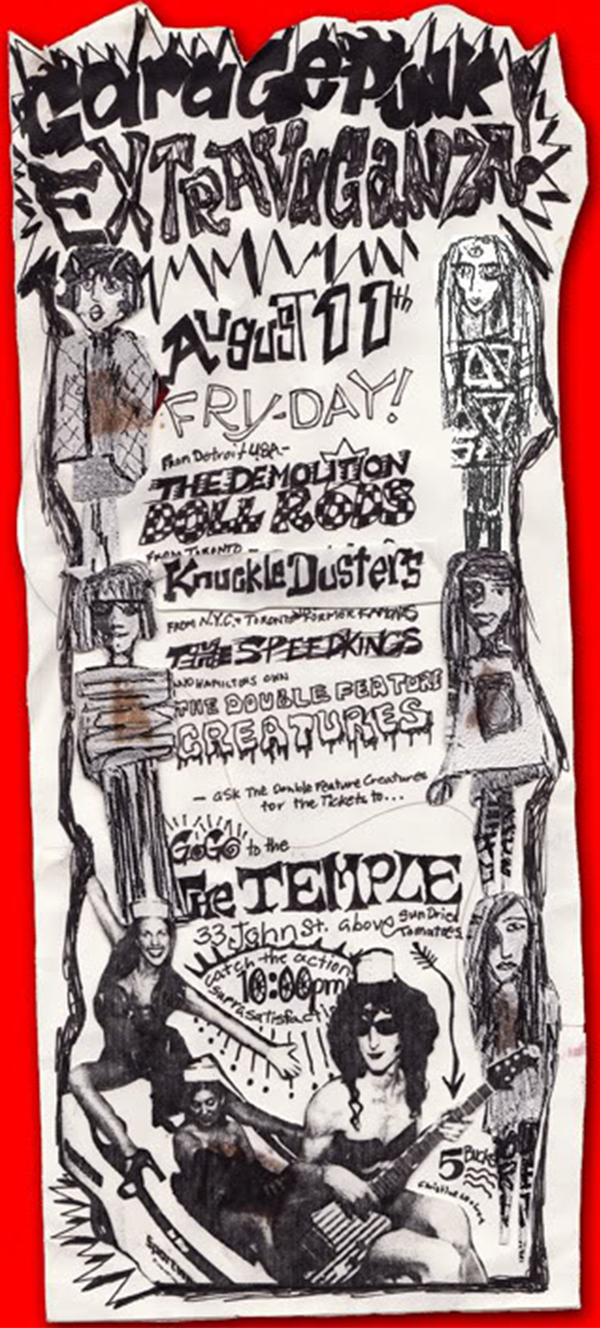 Garage Punk
EXTRAVAGANZA!
AUgUST 11th
FRY-DAY!
From Detroit USA-
THE DEMOLITION
DOLL RODS
FROM TORONTO -
Knuckle Dusters
FROM N.Y.C. + TORONTO FORMER
THE SPEEDKINGS
AND HAMILTONS OWN
THE DOUBLE FEATURE
CREATURES
- ask The Double Feature Creatures
for the Tickets to...
GoGo to the
The TEMPLE
33 John St. above Sun Dried Tomatoes
catch the action
10:00pm
5 Bucks